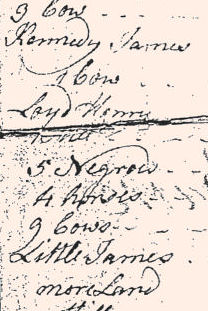 9 Cow
Kennedy James
1 Cow
Loyd Henry
5 Negroes
4 horses
9 Cows
Little James
more Land